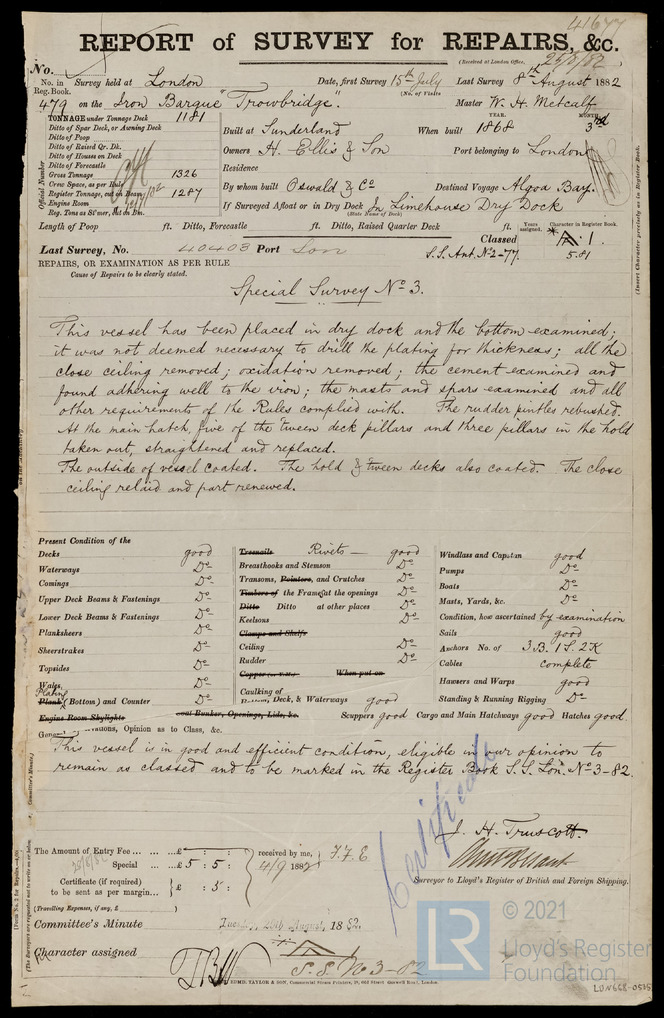 41677
REPORT of SURVEY for REPAIRS, &c.
(Received at London Office, 25/8/82
No.
No. in Reg. Book. Survey held at London Date, first Survey 15th July Last Survey 8th August 1882
(No. of Visits
479 on the Iron Barque "Trowbridge." Master W. H. Metcalf
TONNAGE under Tonnage Deck 1181
Ditto of Spar Deck, or Awning Deck
Ditto of Poop
Ditto of Raised Qr. Dk.
Ditto of Houses on Deck
Ditto of Forecastle
Gross Tonnage 1326
Crew Space, as per Rule
Register Tonnage, cut on Beam 1287
Engine Room
Reg. Tons as St'mer, cut on Bm.
Official Number
Built at Sunderland When built YEAR. 1868 MONTH. 3rd
Owners H. Ellis & Son Port belonging to London
Residence
By whom built Oswald & Co Destined Voyage Algoa Bay.
If Surveyed Afloat or in Dry Dock In Limehouse Dry Dock
(State Name of Dock)
Length of Poop ft. Ditto, Forecastle ft. Ditto, Raised Quarter Deck ft.
Years assigned. Character in Register Book.
Last Survey, No. 40403 Port Lon Classed A.1.
S.S. Ant. No 2-77. 5.81
(Insert Character precisely as in Register Book.
REPAIRS, OR EXAMINATION AS PER RULE
Cause of Repairs to be clearly stated.
Special Survey No 3.
This vessel has been placed in dry dock and the bottom examined;
it was not deemed necessary to drill the plating for thickness; all the
close ceiling removed; oxidation removed; the cement examined and
found adhering well to the iron; the masts and spars examined and all
other requirements of the Rules complied with. The rudder pintles rebushed.
At the main hatch, five of the tween deck pillars and three pillars in the hold
taken out, straightened and replaced.
The outside of vessel coated. The hold & tween decks also coated. The close
ceiling relaid and part renewed.
Present Condition of the
Decks good
Waterways Do
Comings Do
Upper Deck Beams & Fastenings Do
Lower Deck Beams & Fastenings Do
Planksheers Do
Sheerstrakes Do
Topsides Do
Wales Do
Plating
Plank (Bottom) and Counter Do
Engine Room Skylights
Coal Bunker, Openings, Lids, &c.
Treenails Rivets — good
Breasthooks and Stemson Do
Transoms, Pointers, and Crutches Do
Timbers of the Frames at the openings Do
Ditto Ditto at other places Do
Keelsons Do
Clamps and Shelfs
Ceiling Do
Rudder Do
Copper When put on
Caulking of Bottom, Deck, & Waterways good
Windlass and Capstan good
Pumps Do
Boats Do
Masts, Yards, &c. Do
Condition, how ascertained by examination
Sails good
Anchors No. of 3 B. 1 S. 2 K
Cables complete
Hawsers and Warps good
Standing & Running Rigging Do
Scuppers good Cargo and Main Hatchways good Hatches good.
General Observations, Opinion as to Class, &c.
This vessel is in good and efficient condition, eligible in our opinion to
remain as classed and to be marked in the Register Book S.S. Lon. No 3-82.
Certificate
J. H. Truscott
Surveyor to Lloyd's Register of British and Foreign Shipping.
The Amount of Entry Fee ... ... ... £ : :
Special ... £ 5 : 5 :
received by me, 4/9 1882
Certificate (if required) to be sent as per margin... £ : 5 :
(Travelling Expenses, if any, £ )
Committee's Minute Tuesday, 29th August, 1882.
Character assigned A 1
S.S. No 3-82
EDMD. TAYLOR & SON, Commercial Steam Printers, London.
(The Surveyors are requested not to write on or below Committee's Minute.)
© 2021
LR Lloyd's Register
Foundation
LON668-0535